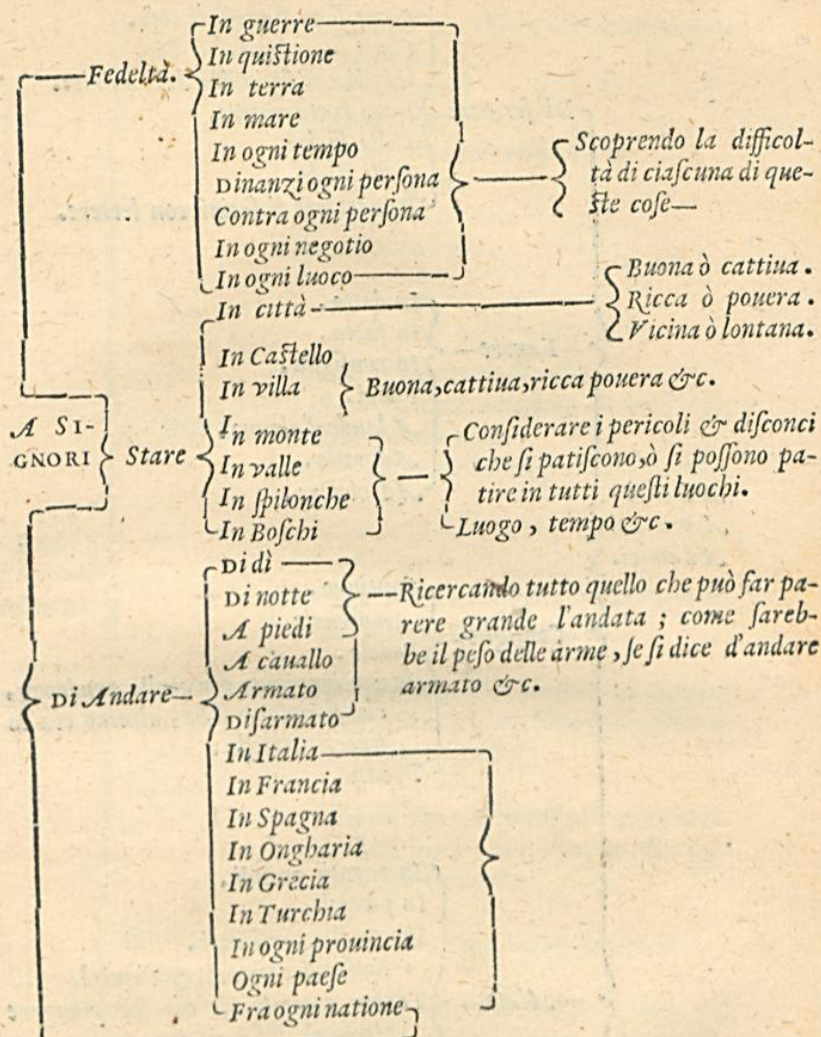 In guerre
Fedeltà.
In quiſtione
In terra
In mare
In ogni tempo
Dinanzi ogni perſona
Contra ogni perſona
In ogni negotio
In ogni luoco
Scoprendo la difficol-
tà di ciaſcuna di que-
ſte coſe
A SI-
GNORI
Stare
In città
Buona ò cattiua.
Ricca ò pouera.
Vicina ò lontana.
In Caſtello
In villa
Buona,cattiua,ricca pouera &c.
In monte
In valle
In ſpilonche
In Boſchi
Conſiderare i pericoli & diſconci
che ſi patiſcono,ò ſi poſſono pa-
tire in tutti queſti luochi.
Luogo, tempo &c.
Di Andare
Di dì
Di notte
A piedi
A cauallo
Armato
Diſarmato
Ricercando tutto quello che può far pa-
rere grande l'andata; come ſareb-
be il peſo delle arme, ſe ſi dice d'andare
armato &c.
In Italia
In Francia
In Spagna
In Ongharia
In Grecia
In Turchia
In ogni prouincia
Ogni paeſe
Fra ogni natione